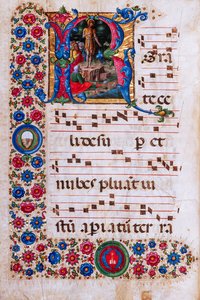 Rora
te ce
li desu p et
nubes pluāt iu
stū apiatur ter ra